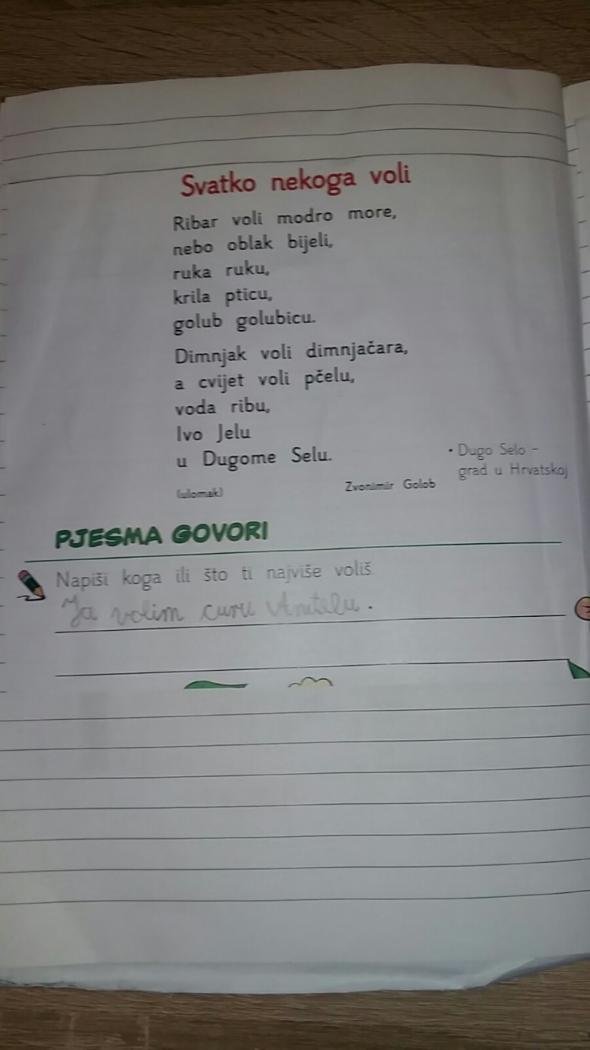 Svatko nekoga voli
Ribar voli modro more,
nebo oblak bijeli,
ruka ruku,
krila pticu,
golub golubicu.
Dimnjak voli dimnjačara,
a cvijet voli pčelu,
voda ribu,
Ivo Jelu
u Dugome Selu.
• Dugo Selo –
grad u Hrvatskoj
(ulomak)
Zvonimir Golob
PJESMA GOVORI
Napiši koga ili što ti najviše voliš.
Ja volim curu